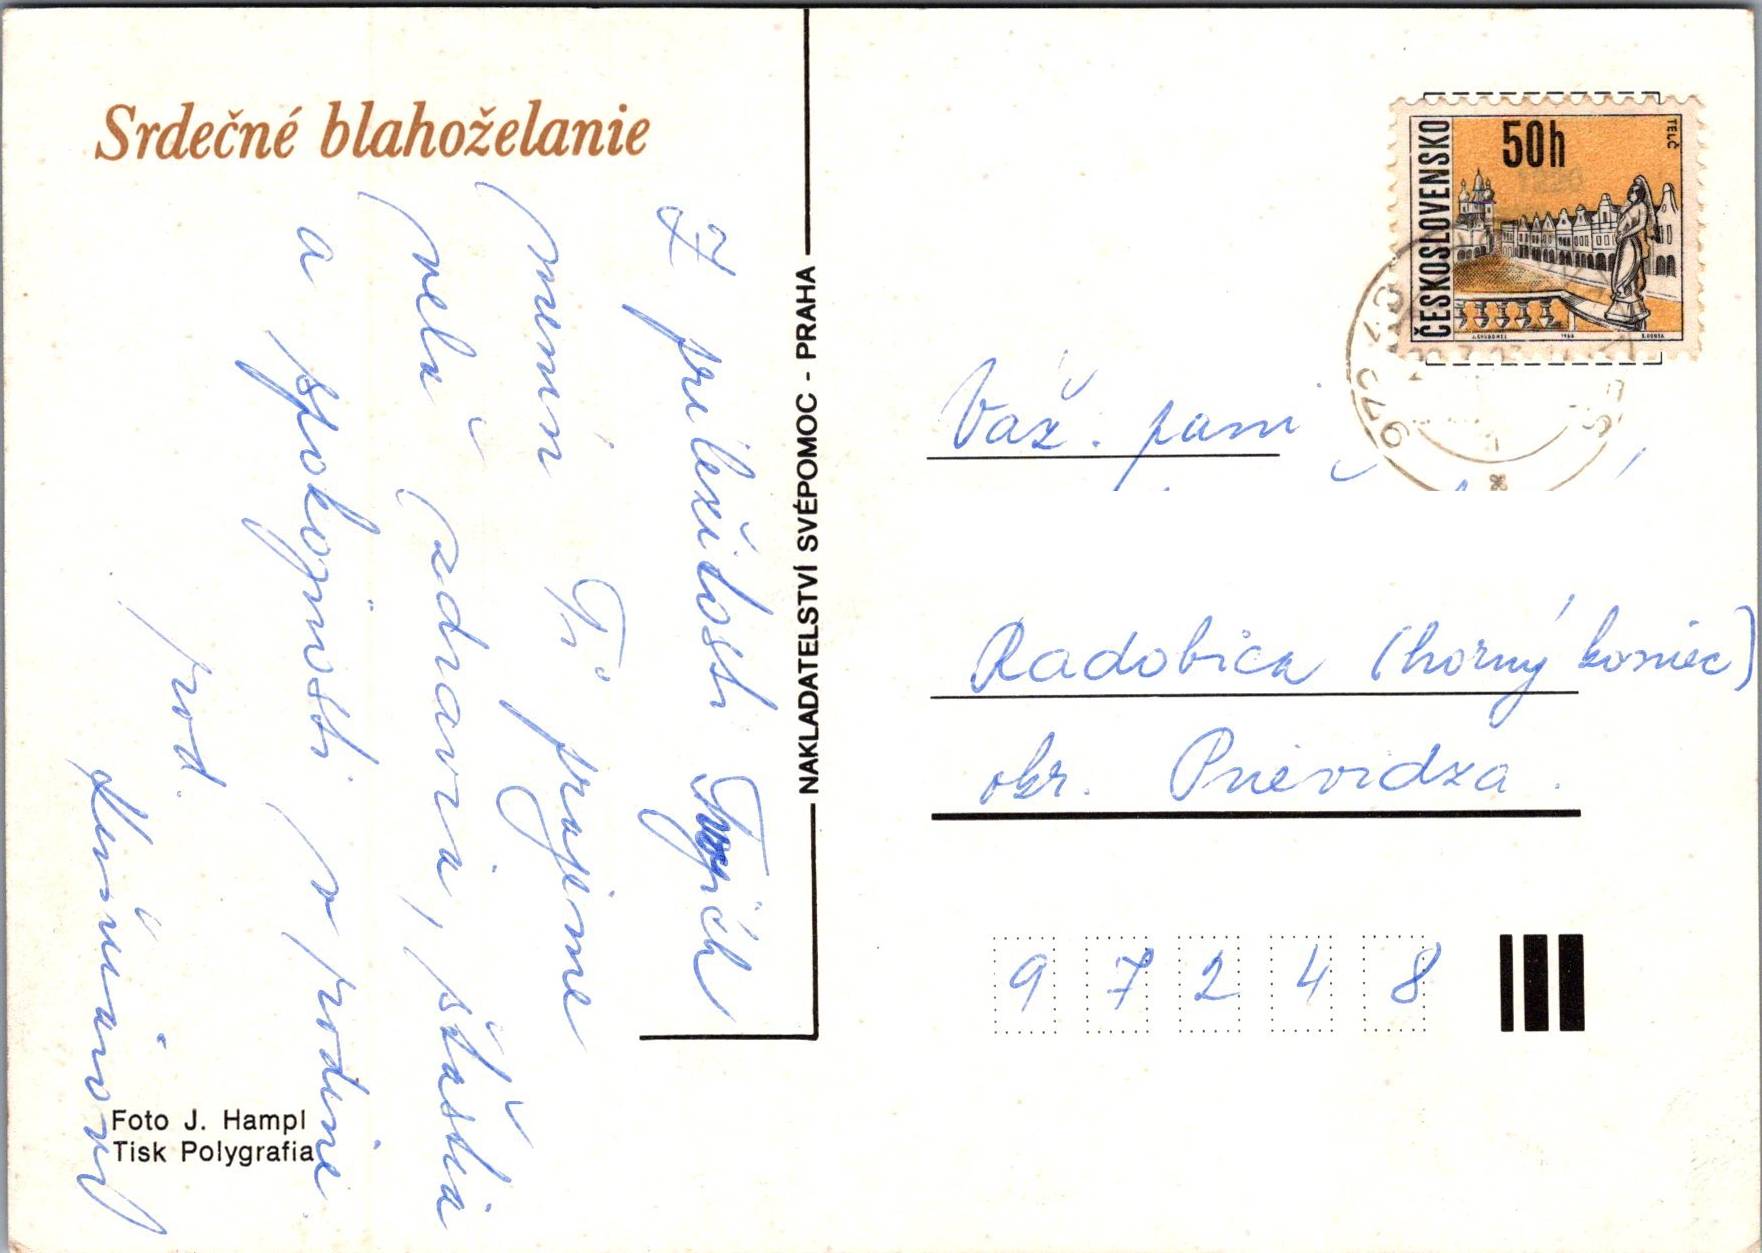 Srdečné blahoželanie
K príležitosti Tvojich
menín Ti prajeme
veľa zdravia, šťastia
a spokojnosti v rodine.
rod.
Foto J. Hampl
Tisk Polygrafia
NAKLADATELSTVÍ SVÉPOMOC - PRAHA
ČESKOSLOVENSKO
50h
TELČ
Váž. pani
Radobica (horný koniec)
okr. Prievidza.
97248